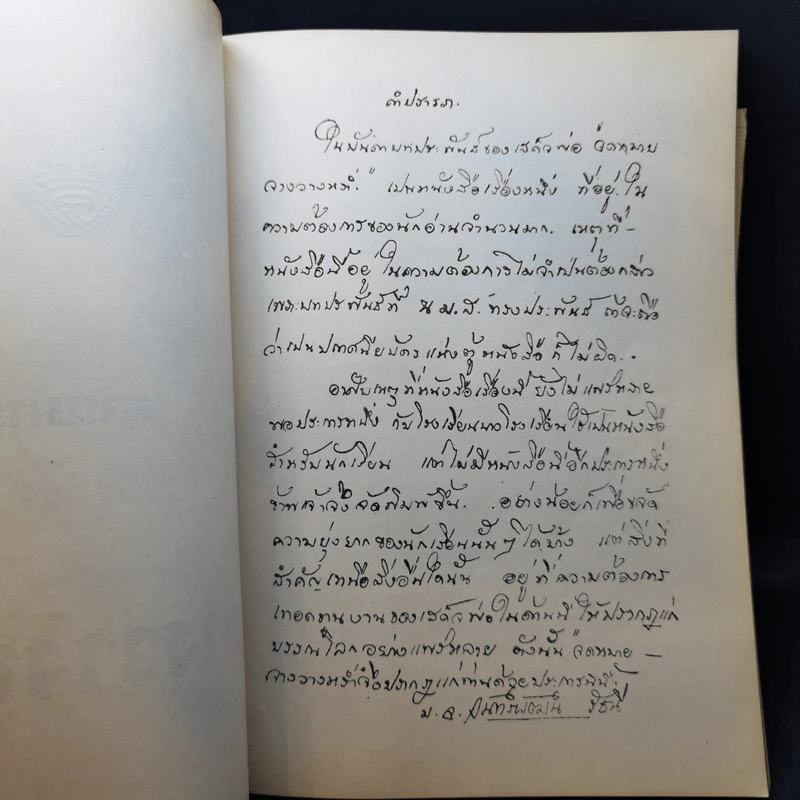 คำปรารภ.
ในบันดาบทประพันธ์ของเสด็จพ่อ "จดหมาย
จางวางหร่ำ." เปนหนังสือเรื่องหนึ่ง ที่อยู่ใน
ความต้องการของนักอ่านจำนวนมาก. เหตุที่ –
หนังสือนี้อยู่ในความต้องการไม่จำเปนต้องกล่าว
เพราะบทประพันธ์ที่ น.ม.ส. ทรงประพันธ์ ถ้าจะถือ
ว่าเปนปกาศนียบัตรแห่งตู้หนังสือ ก็ไม่ผิด..
อาศัยเหตุที่หนังสือเรื่องนี้ ยังไม่แพร่หลาย
พอประการหนึ่ง กับโรงเรียนบางโรงเรียนใช้เปนหนังสือ
สำหรับนักเรียน แต่ไม่มีหนังสือนี่อีกประการหนึ่ง
ข้าพเจ้าจึงจัดพิมพ์ขึ้น. อย่างน้อยก็เพื่อขจัด
ความยุ่งยากของนักเรียนนั้นๆ ได้บ้าง แต่สิ่งที่
สำคัญเหนือสิ่งอื่นใดนั้น อยู่ที่ความต้องการ
เทอดทานงานของเสด็จพ่อในด้านนี้ ให้ปรากฏแก่
บรรณโลกอย่างแพร่หลาย ดังนั้น "จดหมาย –
จางวางหร่ำ" จึงปรากฏแก่ท่านด้วยประการฉะนี้.
ม.จ. จันทร์พัฒน์ รัชนี